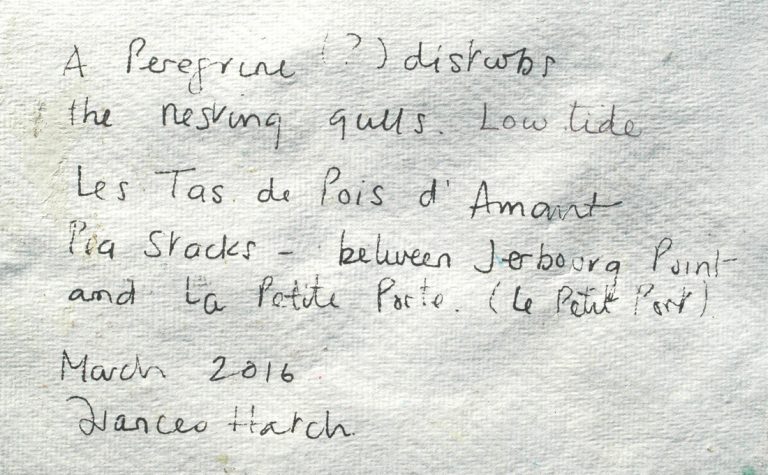 A Peregrine (?) disturbs
the nesting gulls. Low tide
Les Tas de Pois d'Amant
Pea Stacks - between Jerbourg Point
and La Petite Porte. (Le Petit Port)
March 2016
Frances Hatch